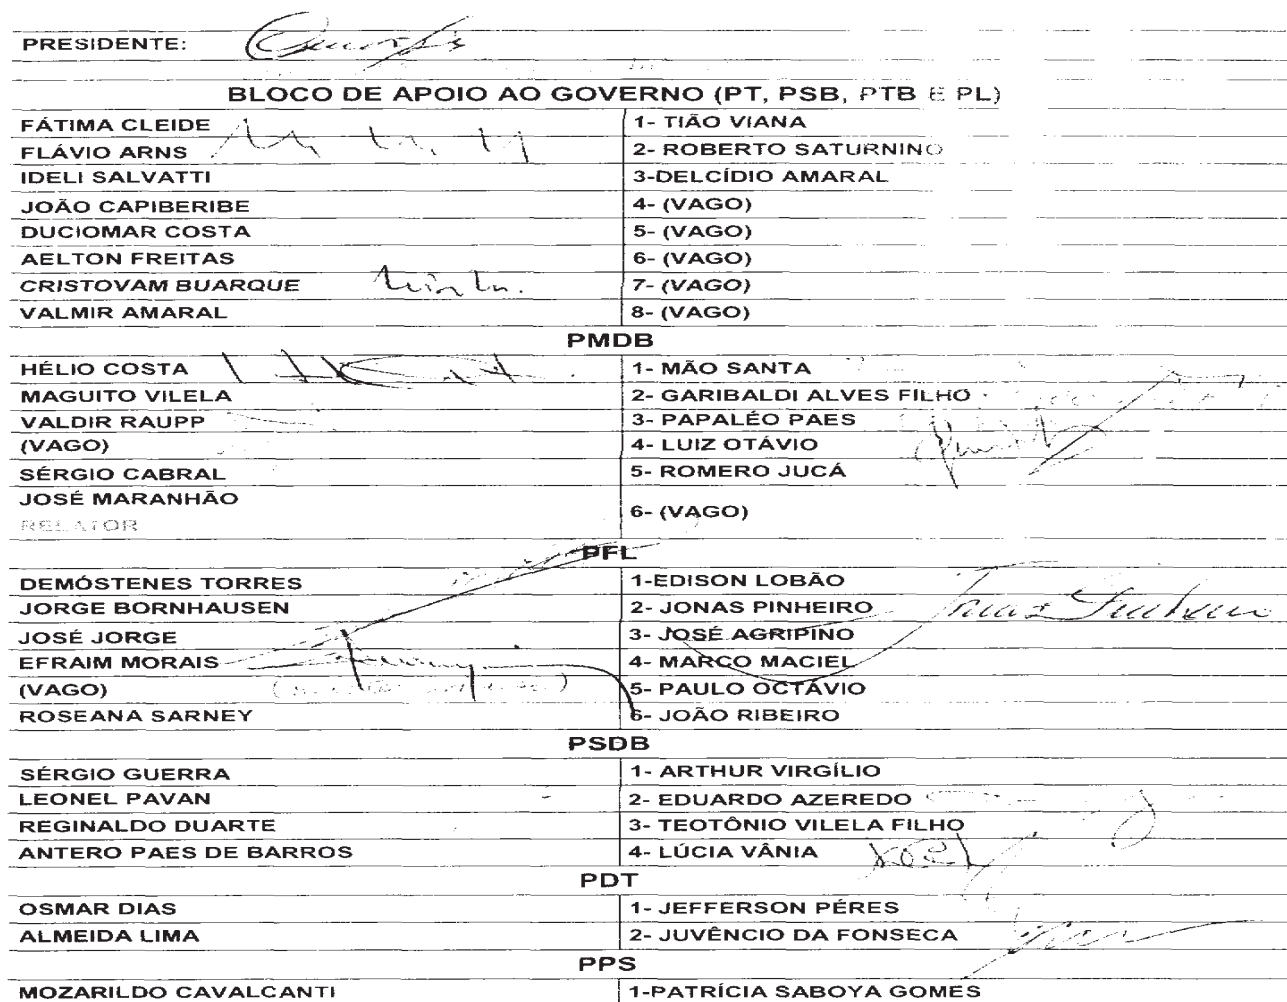 PRESIDENTE:
BLOCO DE APOIO AO GOVERNO (PT, PSB, PTB E PL)
FÁTIMA CLEIDE 1- TIÃO VIANA
FLÁVIO ARNS 2- ROBERTO SATURNINO
IDELI SALVATTI 3-DELCÍDIO AMARAL
JOÃO CAPIBERIBE 4- (VAGO)
DUCIOMAR COSTA 5- (VAGO)
AELTON FREITAS 6- (VAGO)
CRISTOVAM BUARQUE 7- (VAGO)
VALMIR AMARAL 8- (VAGO)
PMDB
HÉLIO COSTA 1- MÃO SANTA
MAGUITO VILELA 2- GARIBALDI ALVES FILHO
VALDIR RAUPP 3- PAPALÉO PAES
(VAGO) 4- LUIZ OTÁVIO
SÉRGIO CABRAL 5- ROMERO JUCÁ
JOSÉ MARANHÃO
RELATOR 6- (VAGO)
PFL
DEMÓSTENES TORRES 1-EDISON LOBÃO
JORGE BORNHAUSEN 2- JONAS PINHEIRO
JOSÉ JORGE 3- JOSÉ AGRIPINO
EFRAIM MORAIS 4- MARCO MACIEL
(VAGO) 5- PAULO OCTÁVIO
ROSEANA SARNEY 6- JOÃO RIBEIRO
PSDB
SÉRGIO GUERRA 1- ARTHUR VIRGÍLIO
LEONEL PAVAN 2- EDUARDO AZEREDO
REGINALDO DUARTE 3- TEOTÔNIO VILELA FILHO
ANTERO PAES DE BARROS 4- LÚCIA VÂNIA
PDT
OSMAR DIAS 1- JEFFERSON PÉRES
ALMEIDA LIMA 2- JUVÊNCIO DA FONSECA
PPS
MOZARILDO CAVALCANTI 1-PATRÍCIA SABOYA GOMES